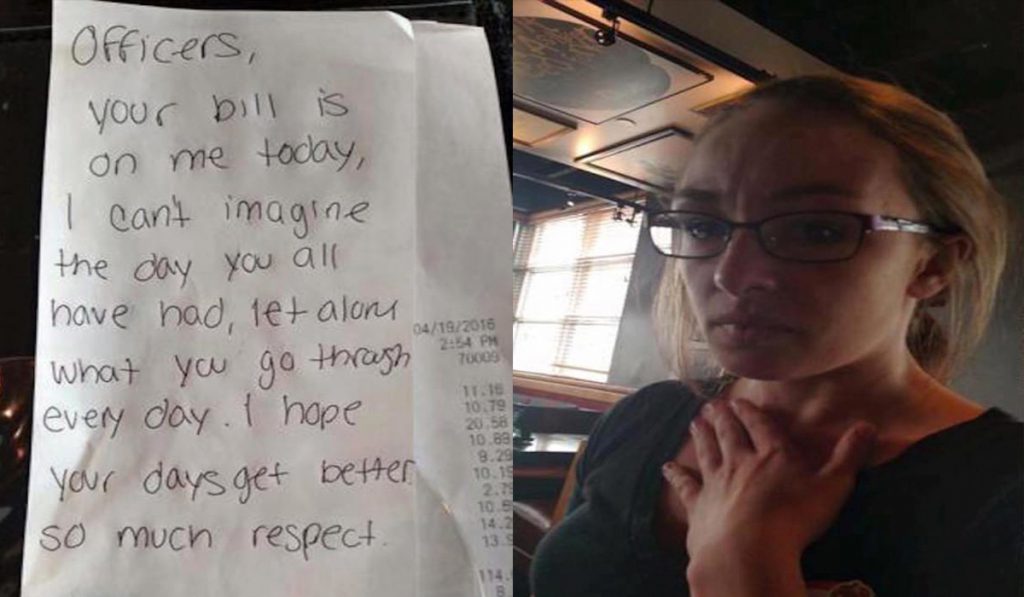 Officers,
your bill is
on me today,
I can't imagine
the day you all
have had, let alone
what you go through
every day. I hope
your days get better
so much respect.
04/19/2016
2:54 PM
70009
11.16
10.79
20.58
10.89
9.29
10.19
2.
10.5
14.2
13.
114.
8